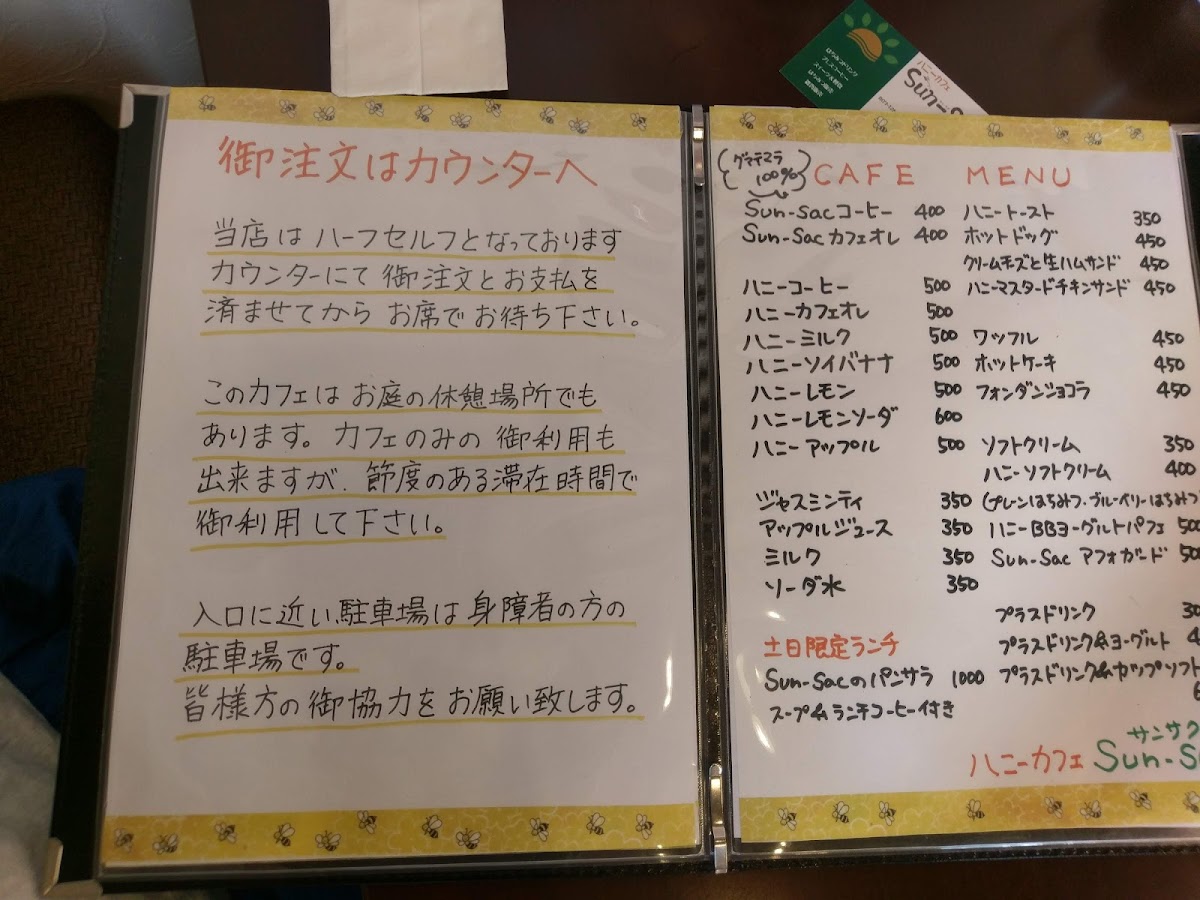 御注文はカウンターへ
当店は ハーフセルフとなっております
カウンターにて 御注文とお支払を
済ませてから お席でお待ち下さい。
このカフェは お庭の休憩場所でも
あります。カフェのみの 御利用も
出来ますが、節度のある滞在時間で
御利用して下さい。
入口に近い駐車場は 身障者の方の
駐車場です。
皆様方の御協力をお願い致します。
ハニーカフェ
Sun-S
グァテマラ
100%
CAFE MENU
Sun-Sacコーヒー 400
Sun-Sacカフェオレ 400
ハニーコーヒー 500
ハニーカフェオレ 500
ハニーミルク 500
ハニーソイバナナ 500
ハニーレモン 500
ハニーレモンソーダ 600
ハニーアップル 500
ジャスミンティ 350
アップルジュース 350
ミルク 350
ソーダ水 350
土日限定ランチ
Sun-Sacのパンサラ 1000
スープ&ランチコーヒー付き
ハニートースト 350
ホットドッグ 450
クリームモズと生ハムサンド 450
ハニーマスタードチキンサンド 450
ワッフル 450
ホットケーキ 450
フォンダンショコラ 450
ソフトクリーム 350
ハニーソフトクリーム 400
(プレーンはちみつ・ブルーベリーはちみつ
ハニーBBヨーグルトパフェ 500
Sun-Sac アフォガード 500
プラスドリンク
プラスドリンク&ヨーグルト
プラスドリンク&カップソフト
サンサク
ハニーカフェ Sun-S